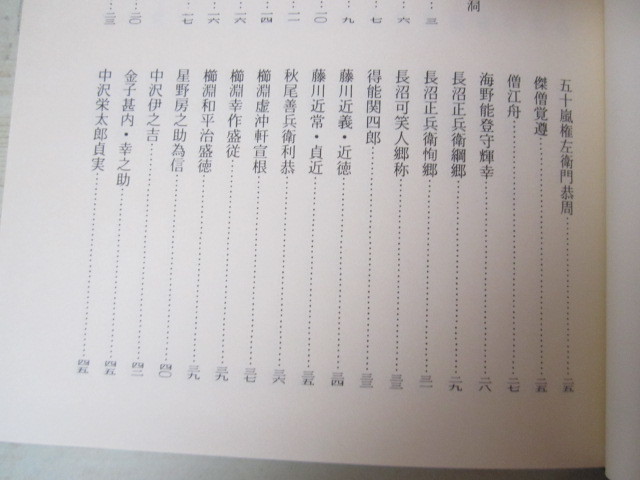 洞
三
六
七
九
一〇
一一
一四
一六
一七
二〇
二三
五十嵐権左衛門恭周……二五
傑僧覚遵……二五
僧江舟……二七
海野能登守輝幸……二八
長沼正兵衛綱郷……二九
長沼正兵衛恂郷……三一
長沼可笑人郷称……三三
得能関四郎……三三
藤川近義・近徳……三四
藤川近常・貞近……三五
秋尾善兵衛利恭……三六
櫛淵虚沖軒宣根……三七
櫛淵幸作盛従……三九
櫛淵和平治盛徳……三九
星野房之助為信……三九
中沢伊之吉……四〇
金子甚内・幸之助……四二
中沢栄太郎貞実……四五
四五